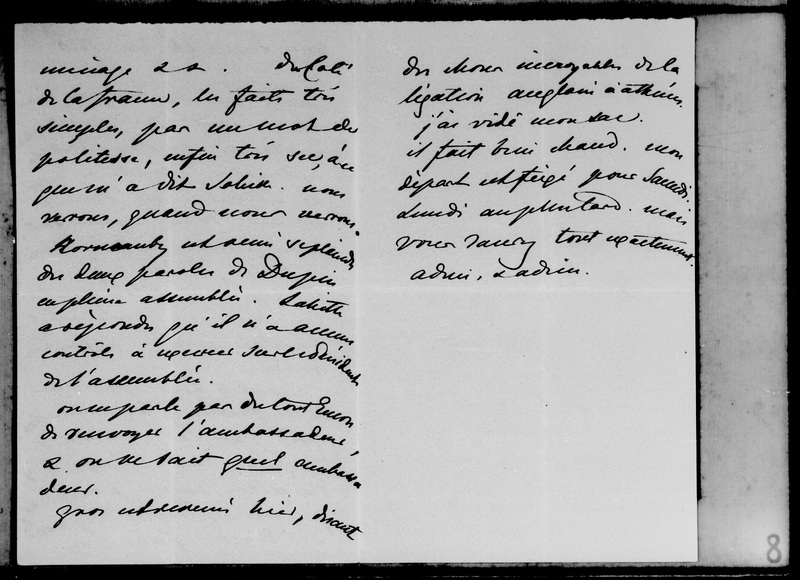 ménage &&. du Coté
de la france, les faits très
simples, par un mot de
politesse, enfin très sec, à ce
que m'a dit Lahitte. nous
verrons, quand nous verrons.
est venu se plaindre
des deux paroles de Dupin
en pleine assemblée. Lahitte
a répondu qu'il n'a aucun
contrôle à exercer sur le président
de l'assemblée.
on ne parle pas du tout encor
de renvoyer l'ambassadeur,
& on ne sait quel ambassa
deur.
gros est revenu hier, disant
des choses incroyables de la
légation anglaise à athènes.
j'ai vidé mon sac.
il fait bien chaud. mon
départ est fixé pour Samedi.
Lundi au plus tard. mais
vous saurez tout exactement.
adieu, & adieu.
8